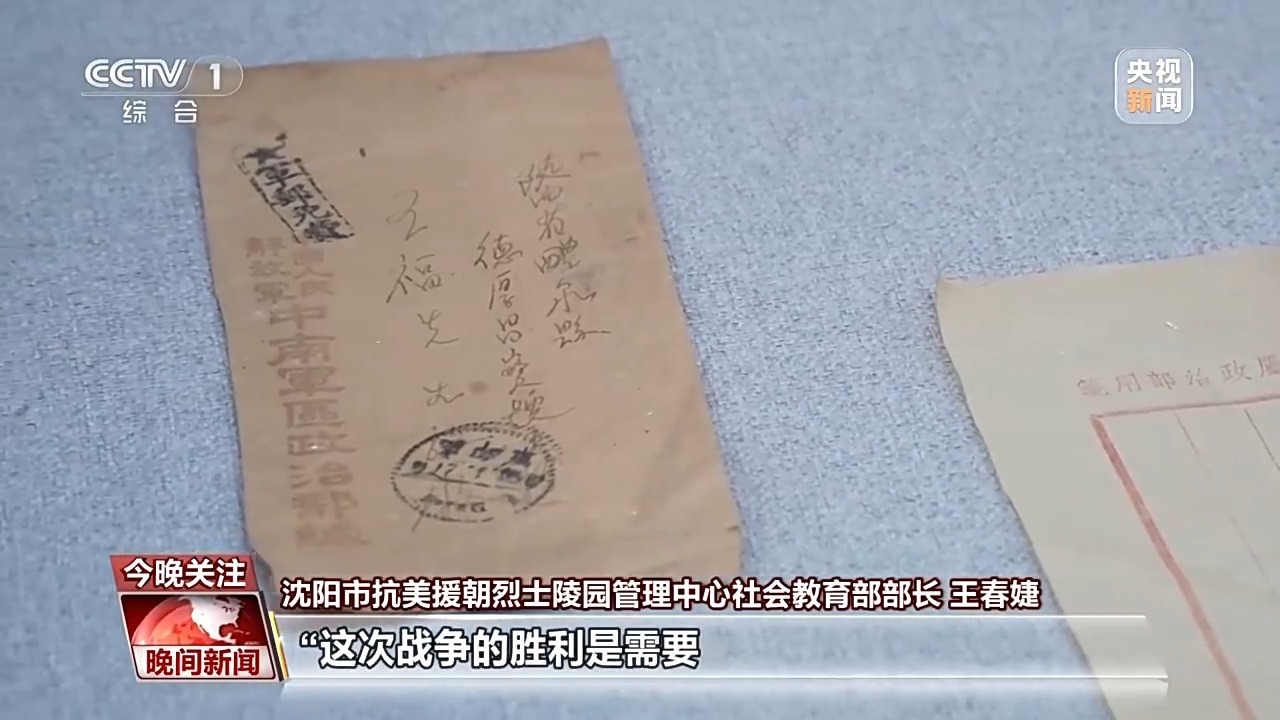 CCTV 1
综合
央视
新闻
大軍郵免費
德厚昌寶號
王福先
解放軍
中南軍區政治部緘
政治部用箋
今晚关注
晚间新闻
沈阳市抗美援朝烈士陵园管理中心社会教育部部长 王春婕
“这次战争的胜利是需要